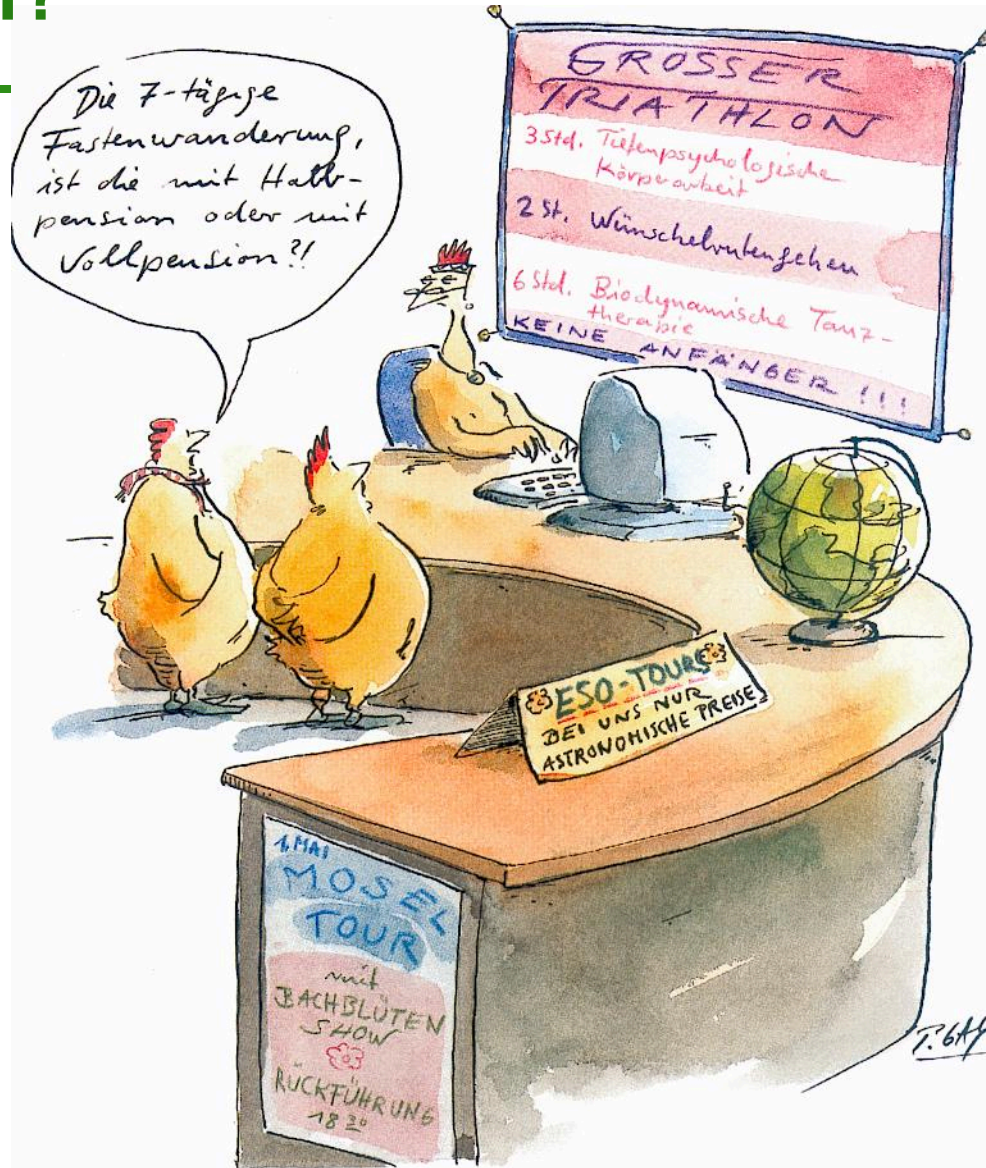 Die 7-tägige
Fastenwanderung,
ist die mit Halb-
pension oder mit
Vollpension?!
GROSSER
TRIATHLON
3 Std. Tiefenpsychologische
Körperarbeit
2 St. Wünschelrutengehen
6 Std. Biodynamische Tanz-
therapie
KEINE ANFÄNGER !!!
ESO-TOURS
BEI UNS NUR
ASTRONOMISCHE PREISE
1. MAI
MOSEL
TOUR
mit
BACHBLÜTEN
SHOW
RÜCKFÜHRUNG
18 30